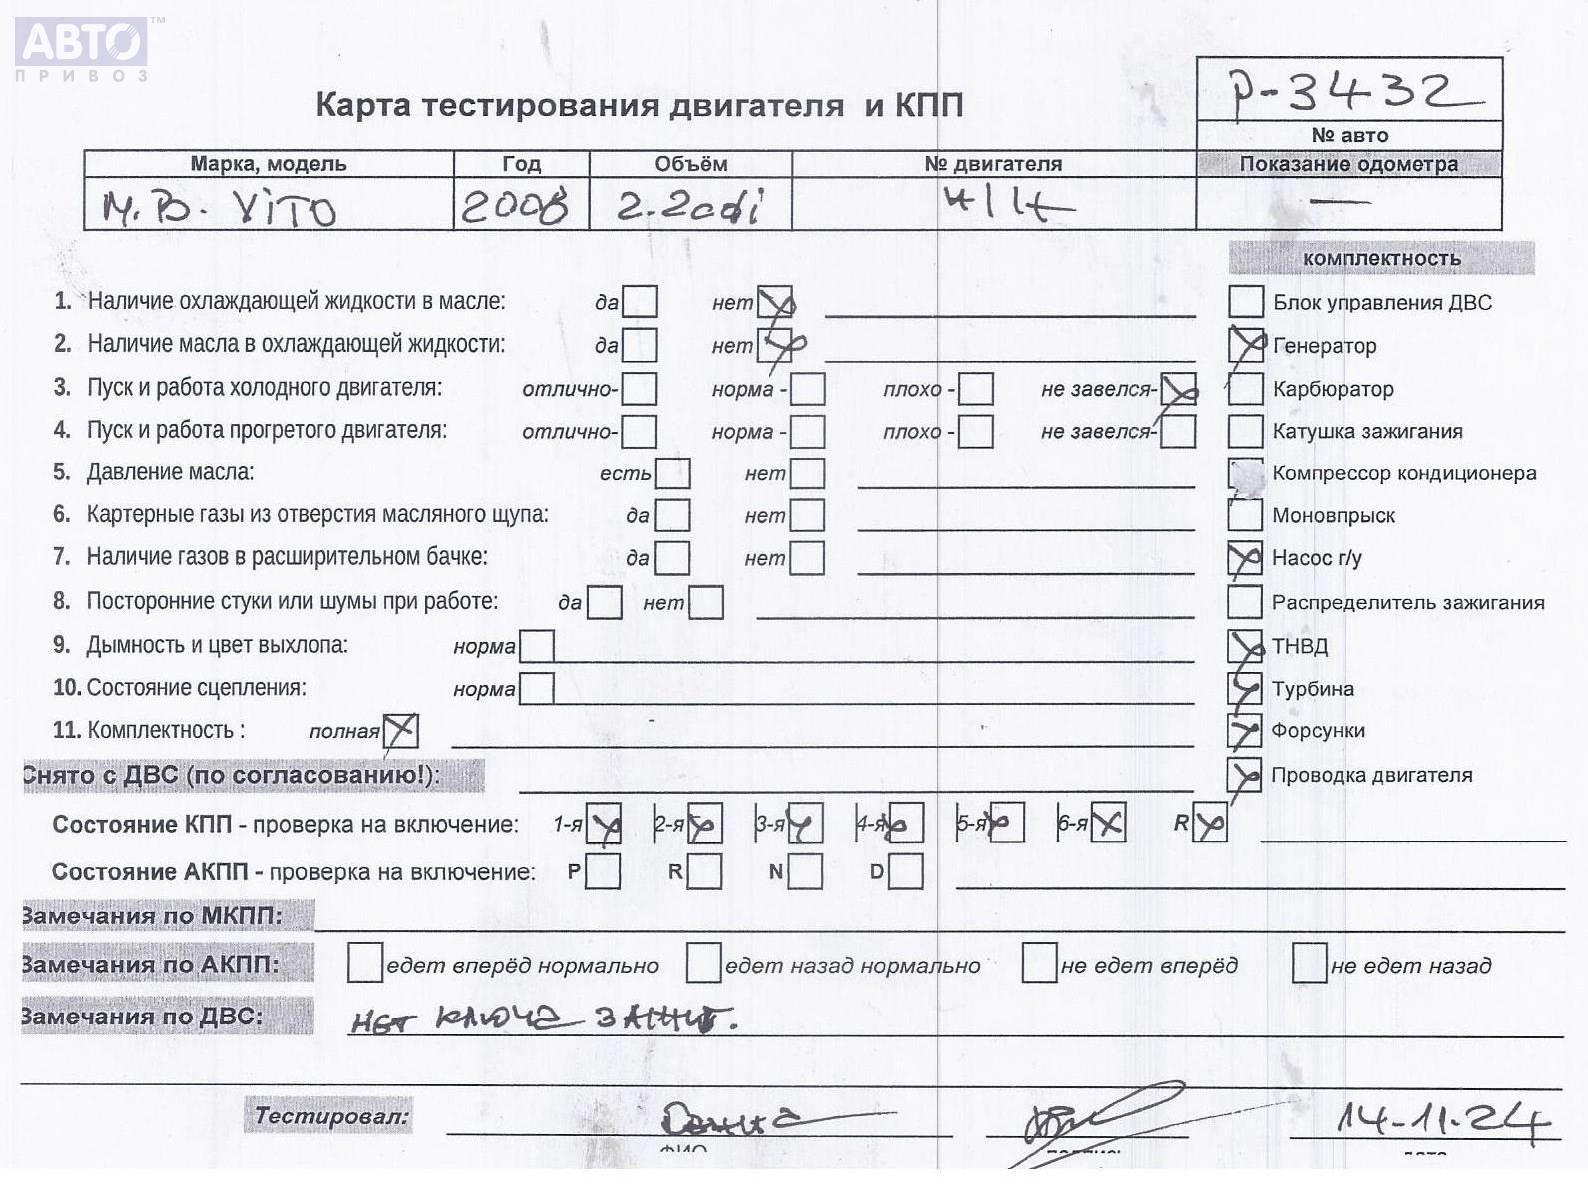 АВТО™
ПРИВОЗ
Р-3432
Карта тестирования двигателя и КПП
№ авто
Марка, модель Год Объём № двигателя Показание одометра
M.B. ViTO 2008 2.2cdi —
комплектность
1. Наличие охлаждающей жидкости в масле: да нет Блок управления ДВС
2. Наличие масла в охлаждающей жидкости: да нет Генератор
3. Пуск и работа холодного двигателя: отлично- норма - плохо - не завелся- Карбюратор
4. Пуск и работа прогретого двигателя: отлично- норма - плохо - не завелся- Катушка зажигания
5. Давление масла: есть нет Компрессор кондиционера
6. Картерные газы из отверстия масляного щупа: да нет Моновпрыск
7. Наличие газов в расширительном бачке: да нет Насос г/у
8. Посторонние стуки или шумы при работе: да нет Распределитель зажигания
9. Дымность и цвет выхлопа: норма ТНВД
10. Состояние сцепления: норма Турбина
11. Комплектность : полная Форсунки
Снято с ДВС (по согласованию!): Проводка двигателя
Состояние КПП - проверка на включение: 1-я 2-я 3-я 4-я 5-я 6-я R
Состояние АКПП - проверка на включение: P R N D
Замечания по МКПП:
Замечания по АКПП: едет вперёд нормально едет назад нормально не едет вперёд не едет назад
Замечания по ДВС: НЕТ КЛЮЧА ЗАЖИГ.
Тестировал: 14-11-24
ФИО подпись дата